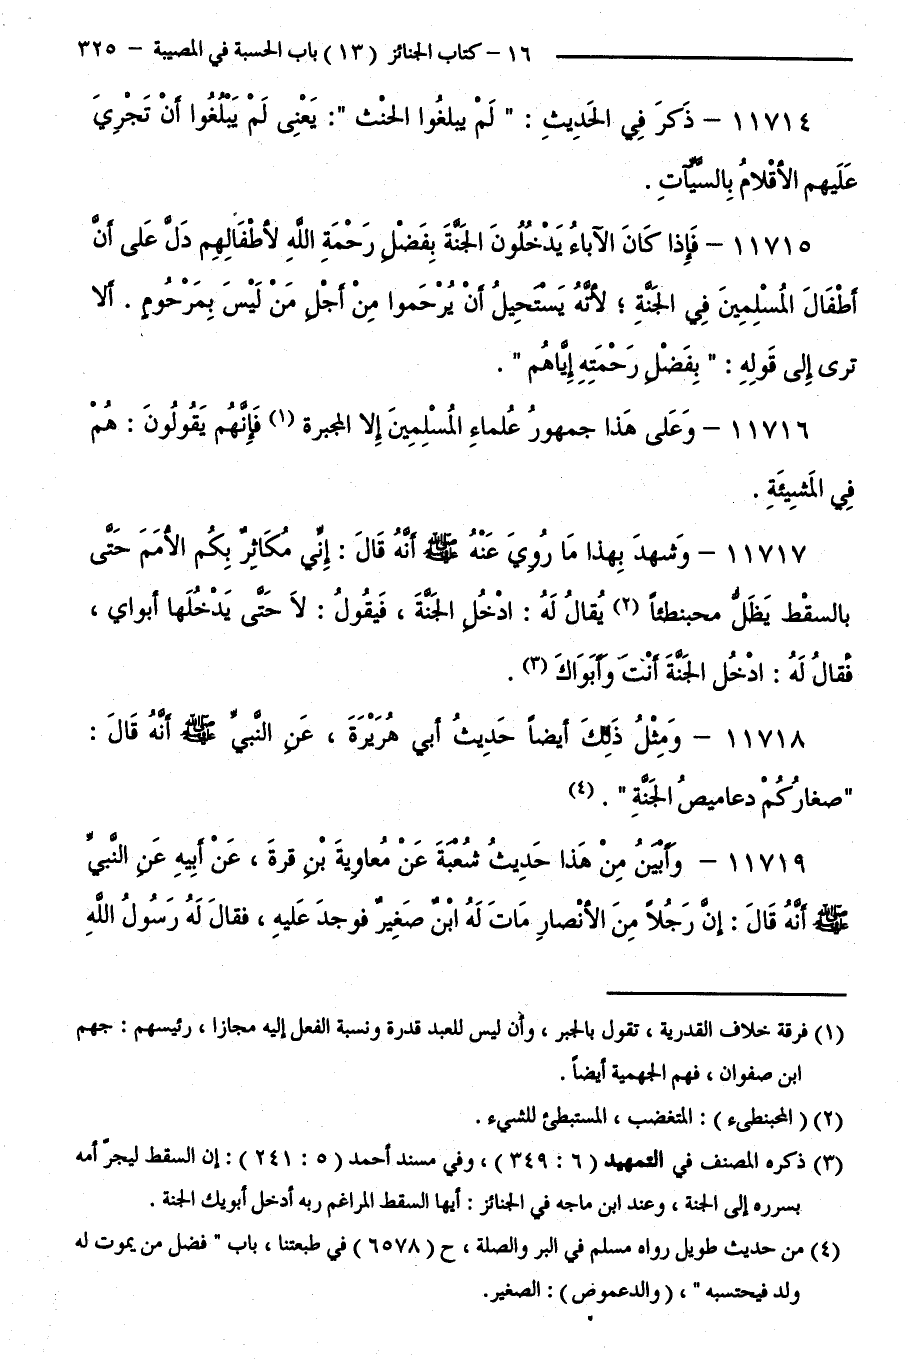 ١٦ – كتاب الجنائز (١٣) باب الحسبة في المصيبة – ٣٢٥
١١٧١٤ – ذَكَرَ فِي الحَدِيثِ : " لَمْ يبلغُوا الحْنث ": يَعْنِى لَمْ يَبْلُغُوا أَنْ تَجْرِيَ
عَلَيهم الأقْلامُ بِالسيَّآتِ .
١١٧١٥ – فَإِذا كَانَ الآباءُ يَدْخُلُونَ الجَنَّةَ بِفَضْلِ رَحْمَةِ اللَّهِ لأطْفَالِهِم دَلَّ عَلى أَنَّ
أَطْفَالَ المُسْلِمِينَ فِي الجَنَّةِ ؛ لأنَّهُ يَسْتَحِيلُ أَنْ يُرْحَموا مِنْ أَجْلِ مَنْ لَيْسَ بِمَرْحُومٍ . أَلا
ترى إِلى قَولِهِ : " بِفَضْلِ رَحْمَتِهِ إِيَّاهُم " .
١١٧١٦ – وَعَلى هَذا جمهورُ عُلماءِ المُسْلِمِينَ إِلا المجبرة (١) فَإِنَّهُم يَقُولُونَ : هُمْ
فِي المَشِيئَةِ .
١١٧١٧ – وَشهدَ بِهذا مَا رُوِيَ عَنْهُ ﷺ أَنَّهُ قَالَ : إِنِّي مُكَاثِرٌ بِكُم الأمَمَ حَتَّى
بالسقْط يَظَلُّ محبنطئاً (٢) يُقالُ لَهُ : ادْخُلِ الجَنَّةَ ، فَيقُولُ : لاَ حَتَّى يَدْخُلَها أبواي ،
فُقالُ لَهُ : ادْخُل الجَنَّةَ أَنْتَ وَأَبَوَاكَ (٣) .
١١٧١٨ – وَمِثْلُ ذَلِكَ أيضاً حَدِيثُ أبي هُرَيْرَةَ ، عَنِ النَّبِيِّ ﷺ أَنَّهُ قَالَ :
"صغارُكُمْ دعاميصُ الجَنَّةِ " . (٤)
١١٧١٩ – وَأَبْيَنُ مِنْ هَذا حَدِيثُ شُعْبَةَ عَنْ مُعاوِيةَ بْنِ قرةَ ، عَنْ أَبِيهِ عَنِ النَّبيِّ
ﷺ أَنَّهُ قَالَ : إِنَّ رَجُلاً مِنَ الأنْصارِ مَاتَ لَهُ ابْنٌ صَغِيرٌ فوجدَ عَليهِ ، فقالَ لَهُ رَسُولُ اللَّهِ
(١) فرقة خلاف القدرية ، تقول بالجبر ، وأن ليس للعبد قدرة ونسبة الفعل إليه مجازا ، رئيسهم : جهم
ابن صفوان ، فهم الجهمية أيضاً .
(٢) ( المحبنطىء ) : المتغضب ، المستبطئ للشيء .
(٣) ذكره المصنف في التمهيد ( ٦ : ٣٤٩ ) ، وفي مسند أحمد ( ٥ : ٢٤١ ) : إن السقط ليجرّ أمه
بسرره إلى الجنة ، وعند ابن ماجه في الجنائز : أيها السقط المراغم ربه أدخل أبويك الجنة .
(٤) من حديث طويل رواه مسلم في البر والصلة ، ح ( ٦٥٧٨ ) في طبعتنا ، باب " فضل من يموت له
ولد فيحتسبه " ، ( والدعموص ) : الصغير.